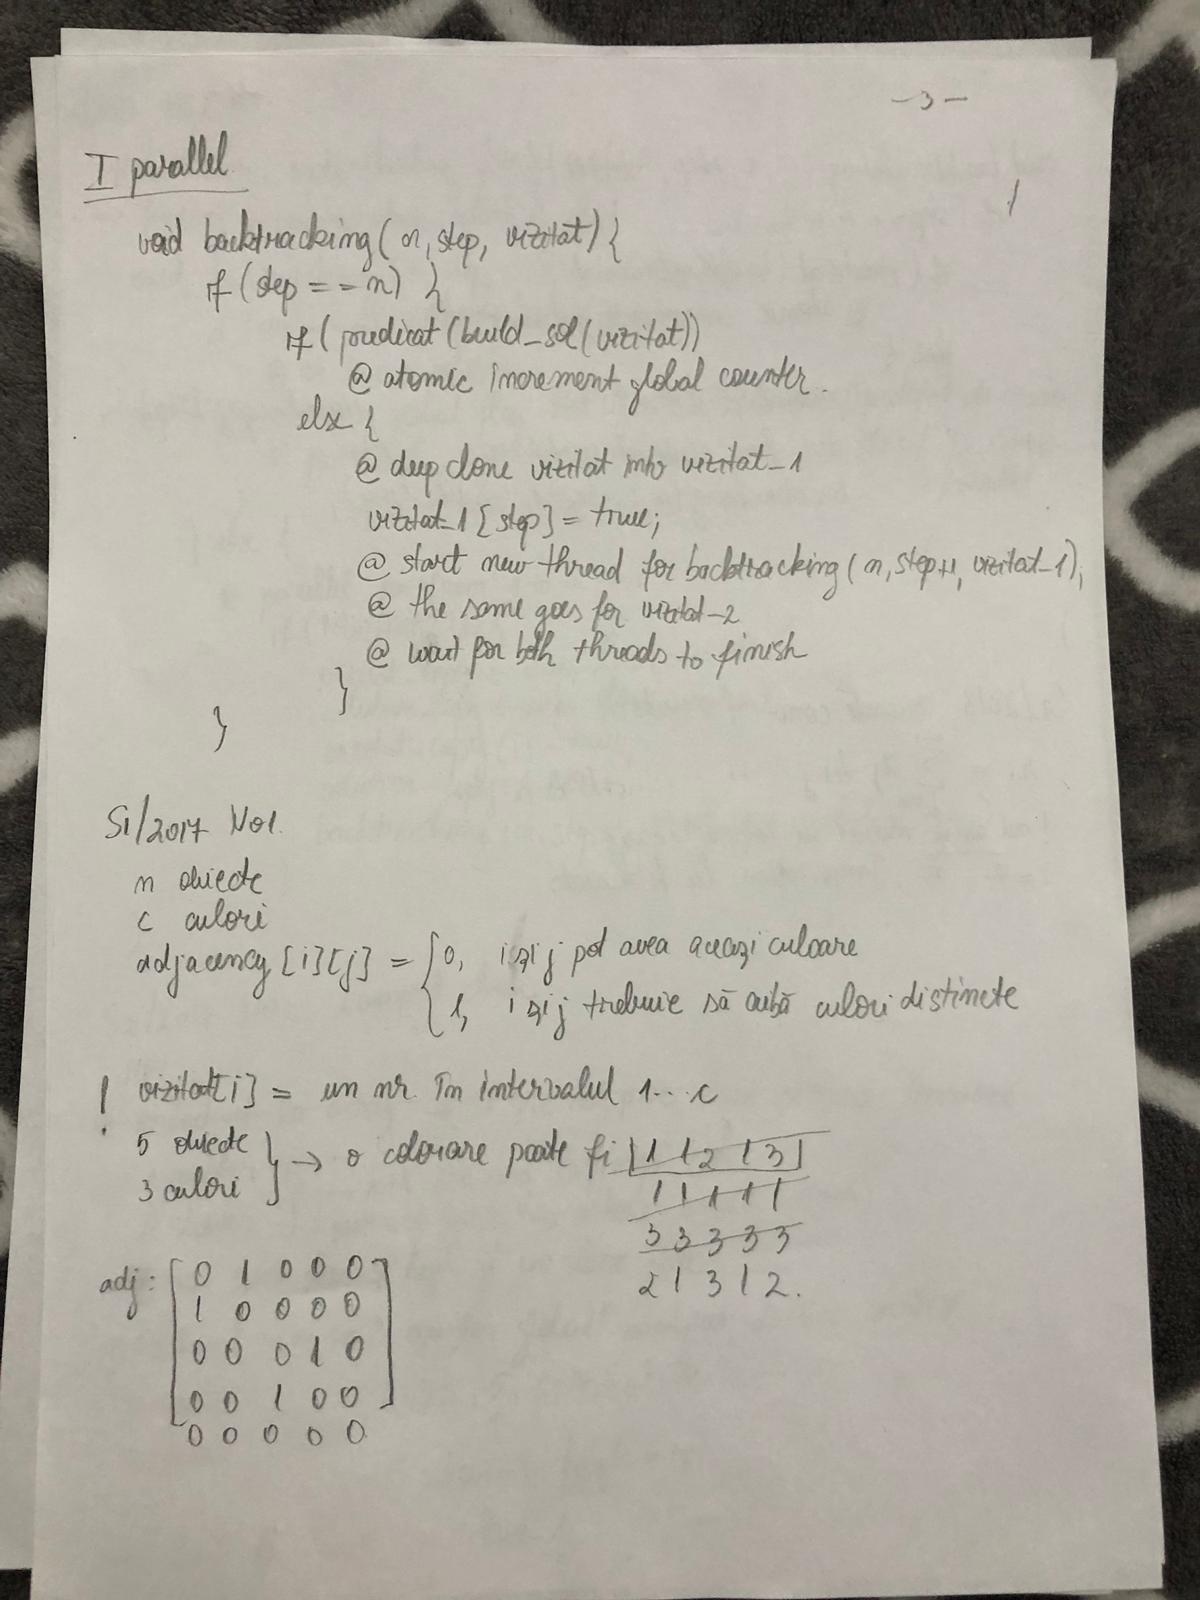 -3-
I parallel
void backtracking(n, step, vizitat) {
if (step == n) {
if (predicat (build_sol(vizitat))
@ atomic increment global counter.
else {
@ deep clone vizitat into vizitat_1
vizitat_1 [step] = true;
@ start new thread for backtracking (n, step+1, vizitat_1);
@ the same goes for vizitat_2
@ wait for both threads to finish
}
}
S1/2017 No1.
n obiecte
c culori
adjacency [i][j] = { 0, i și j pot avea aceași culoare
1, i și j trebuie să aibă culori distincte
! vizitat[i] = un nr. în intervalul 1...c
5 obiecte
3 culori } → o colorare poate fi 1 1 2 1 3
1 1 1 1 1
3 3 3 3 3
2 1 3 1 2.
adj: 0 1 0 0 0
1 0 0 0 0
0 0 0 1 0
0 0 1 0 0
0 0 0 0 0